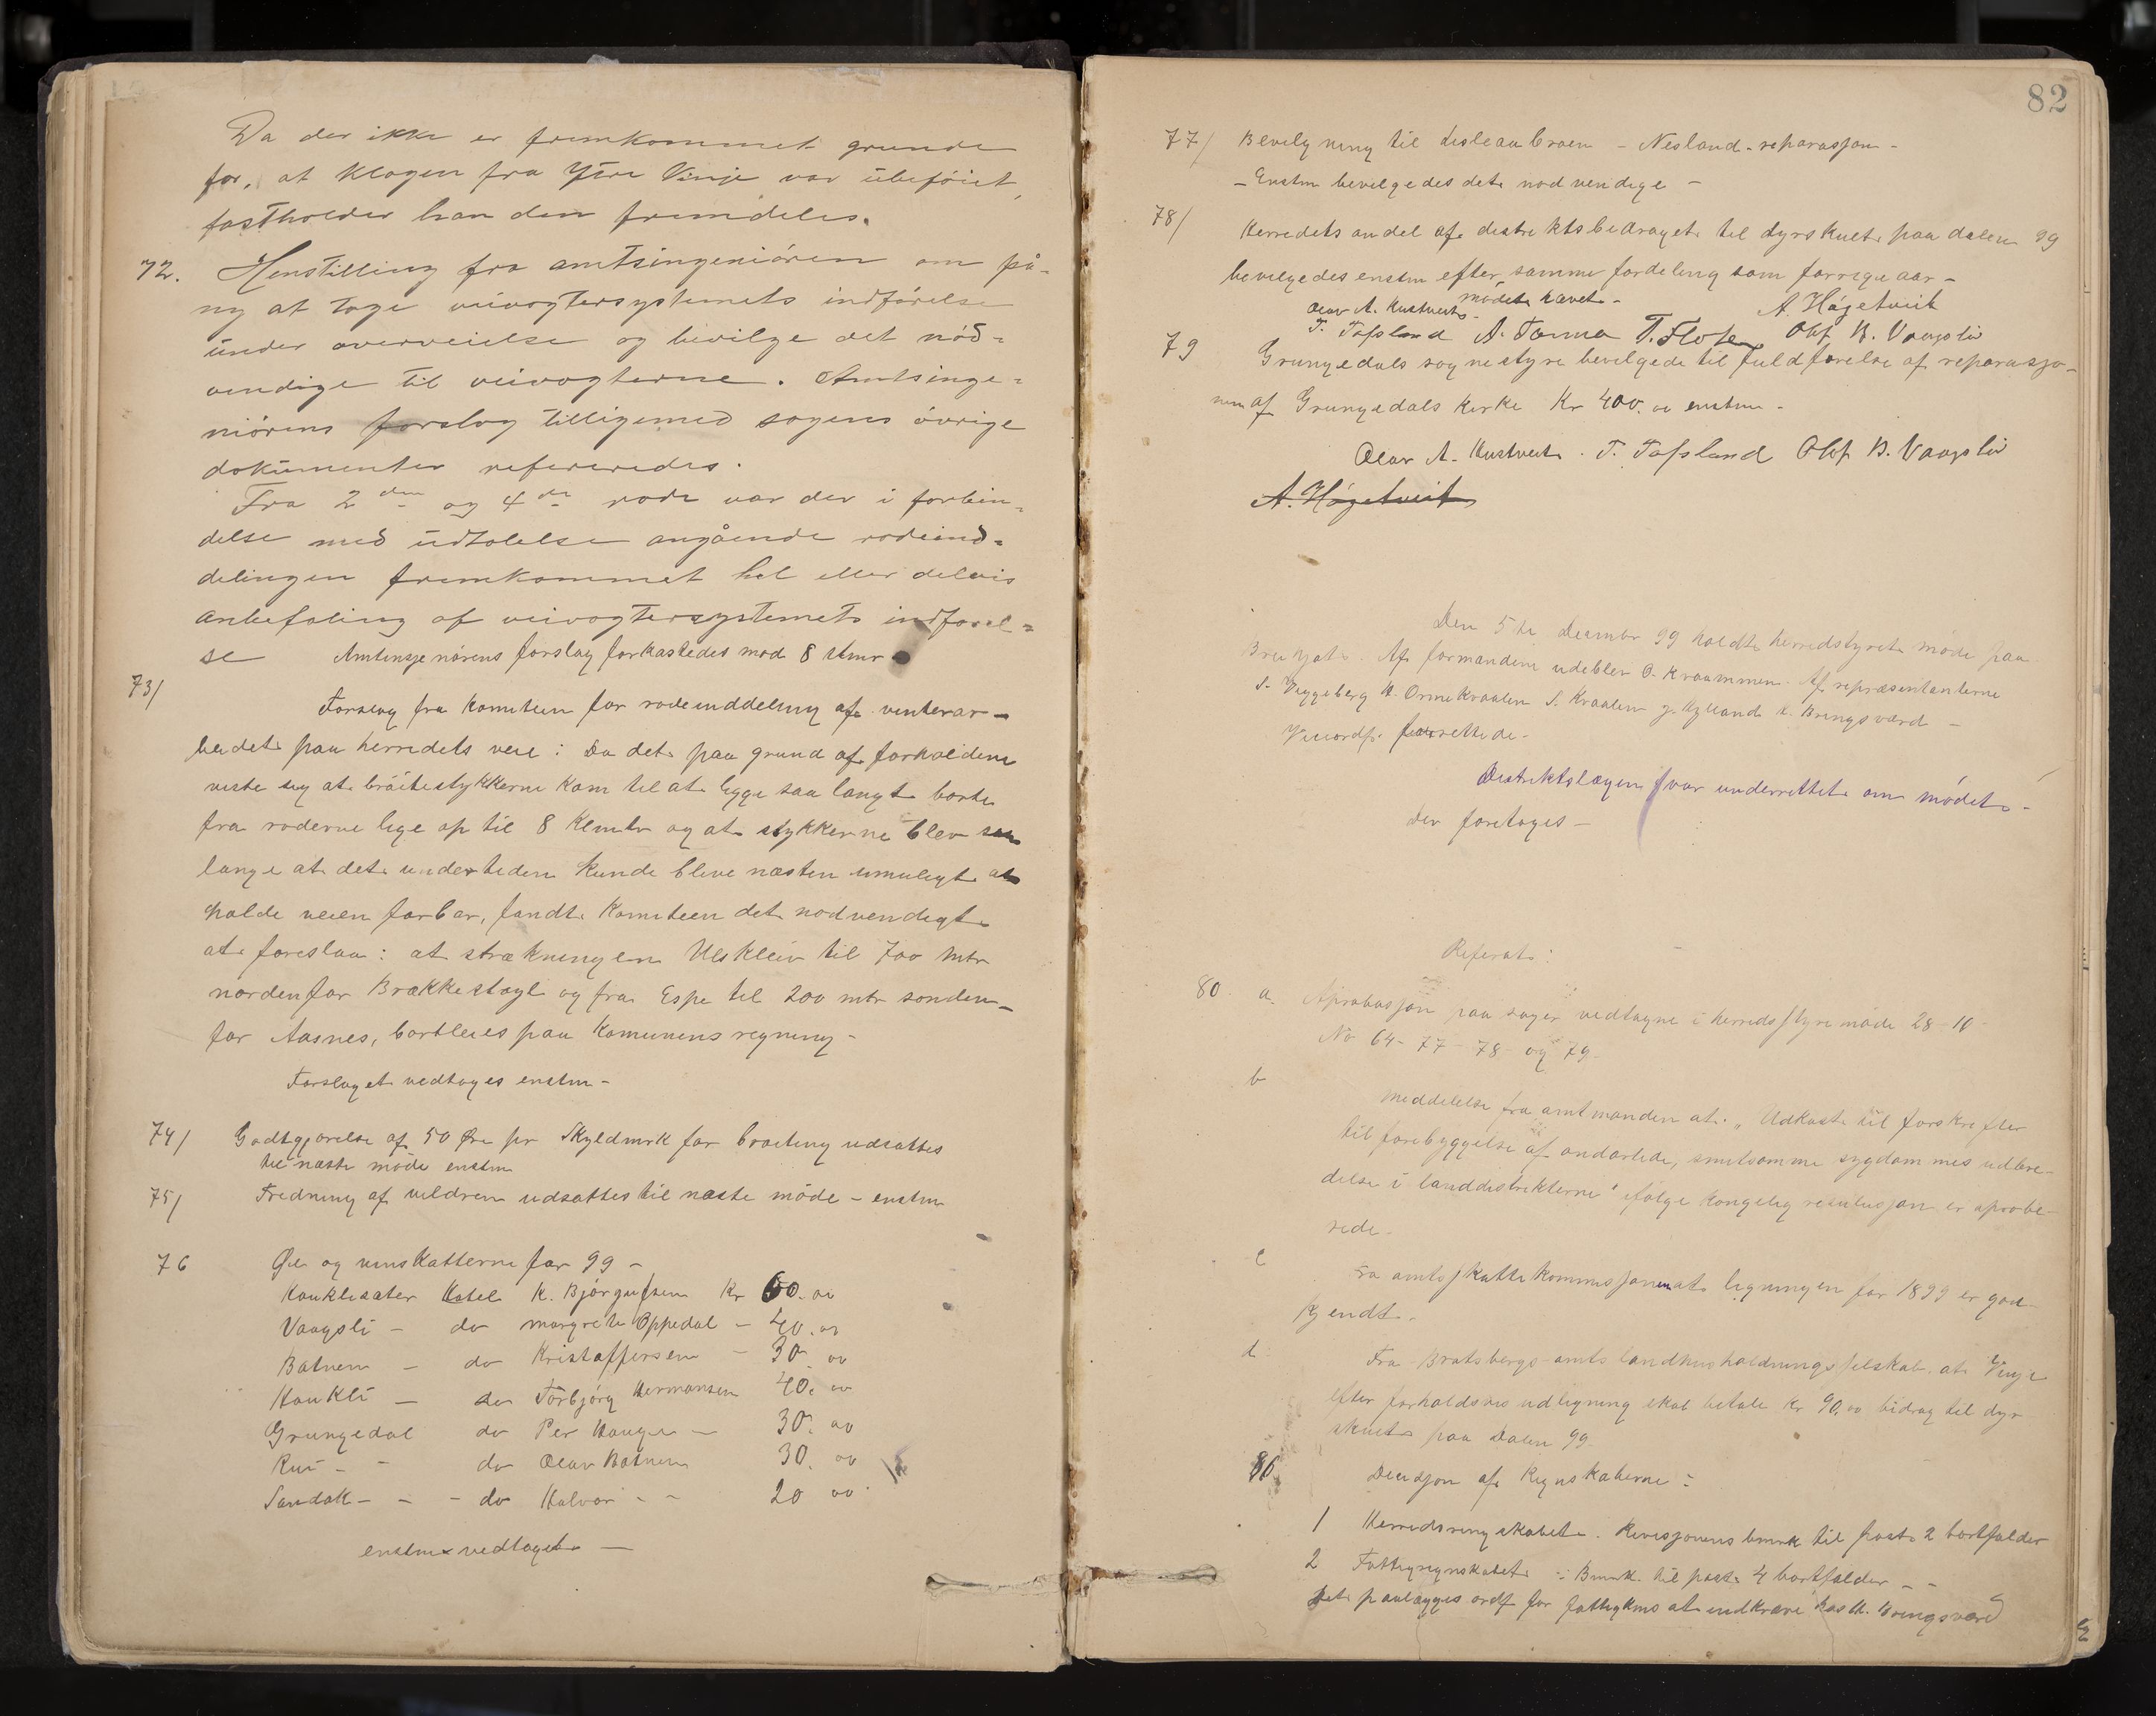 Da der ikke er fremkommet grunde
for, at klagen fra Ytre Vinje var ubeføiet,
fastholder han den fremdeles.
72. Henstilling fra amtsingeniören om på-
ny at tage veivogtersystemets indförelse
under overveielse og bevilge det nöd=
vendige til veivogterne. Amtsinge=
niörens forslag tilligemed sagens övrige
dokumenter refereredes.
Fra 2den og 4de rode var der i forbin=
delse med udtalelse angående rodeind=
delingen fremkommet hel eller delvis
anbefaling af veivogtersystemets indförel=
se Amtinsjenörens forslag forkastedes mod 8 stmr
73/
Forslag fra komiteen for rodeinddeling af vinterar-
beidet paa herredets veie: Da det paa grund af forholdene
viste sig at bröitestykkerne kom til at ligge saa langt borte
fra roderne lige op til 8 klmtr og at stykkerne blev saa
lange at det undertiden kunde blive næsten umuligt at
holde veien farbar, fandt komiteen det nødvendigt
at foreslaa: at strækningen Ulskleiv til 700 mtr
nordenfor Brækkestøyl og fra Espe til 200 mtr sonden-
for Aasnes, bortleies paa komunens regning -
Forslaget vedtoges enstm -
74/ Godtgjørelse af 50 Øre pr Skyldmrk for brøiting udsattes
til næste möde enstm
75/ Fredning af vildren udsattes til næste möde - enstm
76 Øl og vinskatterne for 99 -
Haukliseter Hotel K. Bjørgufsen Kr 60. oo
Vaagsli - do Margrete Oppedal - 40. oo
Botnen - do Kristoffersen - 30. oo
Haukli - do Torbjörg Hermansen 40. oo
Grungedal do Per Hauge - 30. oo
Rui - - do Olav Botnen 30. oo
Sandok - - - do Halvor - - 20 oo
enstm vedtaget -
82
77/ Bevilgning til Lisleaabroen - Nesland - reparasjon -
- Enstm bevilgedes det nødvendige -
78/
Herredets andel af distriktsbidraget til dyrskuet paa dalen 99
bevilgedes enstm efter samme fordeling som forrige aar -
mödet hævet -
Olav A. Kustveit A. Högetveit
T. Tofsland A. Torma T. Flote Olaf B. Vaagsli
79 Grungedals sognestyre bevilgede til fuldförelse af reparasjo-
nen af Grungedals kirke Kr 400. oo enstm -
Olav A. Kustveit. T. Tofsland Olaf B. Vaagsli
A. Högetveit
Den 5te Decembr 99 holdte herredstyret möde paa
Af formændene udeblev O. Kraammen. Af repræsentanterne
S. Viggeberg H. Ormekraalen S. Kraalen G. Hylland K. Bringsværd -
Viceordf.
Distriktslægen var underrettet om mödet -
Der foretoges -
Referat:
80. a. Aprobasjon paa sager vedtagne i herredsstyremöde 28-10-
No 64 - 77 - 78 - og 79 -
b
Meddelelse fra amtmanden at: „Udkast til forskrifter
til forebyggelse af ondartede, smitsomme sygdommes udbre-
delse i landdistrikterne" ifølge kongelig resolusjon er aprobe-
rede -
c
Fra amtsskattekommisjonen at ligningen for 1899 er god-
kjendt.
d.
Fra Bratsbergs amts landhusholdningsselskab, at Vinje
efter forholdsvis udligning skal betale Kr 90.oo bidrag til dyr-
skuet paa Dalen 99.
81 Desisjon af Regnskaberne -
1 Herredsregnskabet. Revisjonens bmrk til post 2 bortfalder
2 Fattigregnskabet -:- Bmrk. til post 4 bortfalder - -
Det paalægges ordf for fattigkms at indkræve hos H. Bringsværd